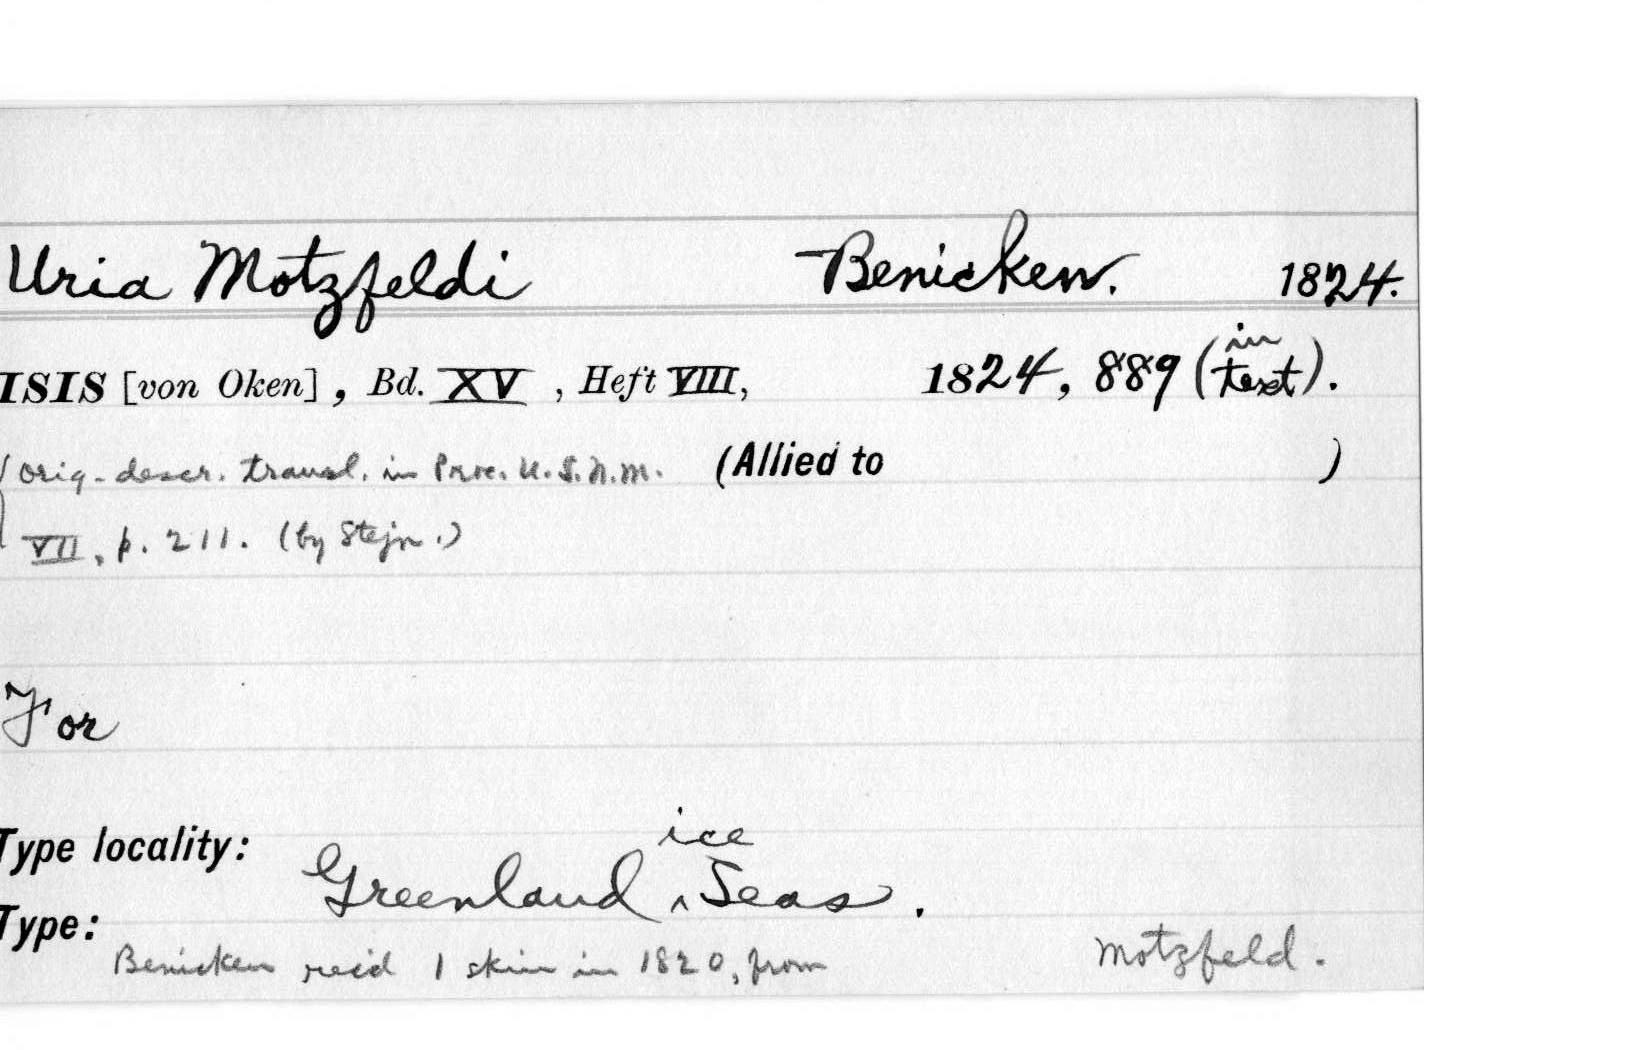 Uria Motzfeldi Benicken. 1824.
ISIS [von Oken], Bd. XV, Heft VIII, 1824, 889 (in text).
(orig. descr. transl. in Proc. U.S.N.M. (Allied to )
VII, p. 211. (by Stejn.)
For
Type locality: Greenland ice Seas.
Type:
Benicken rec'd 1 skin in 1820, from Motzfeld.